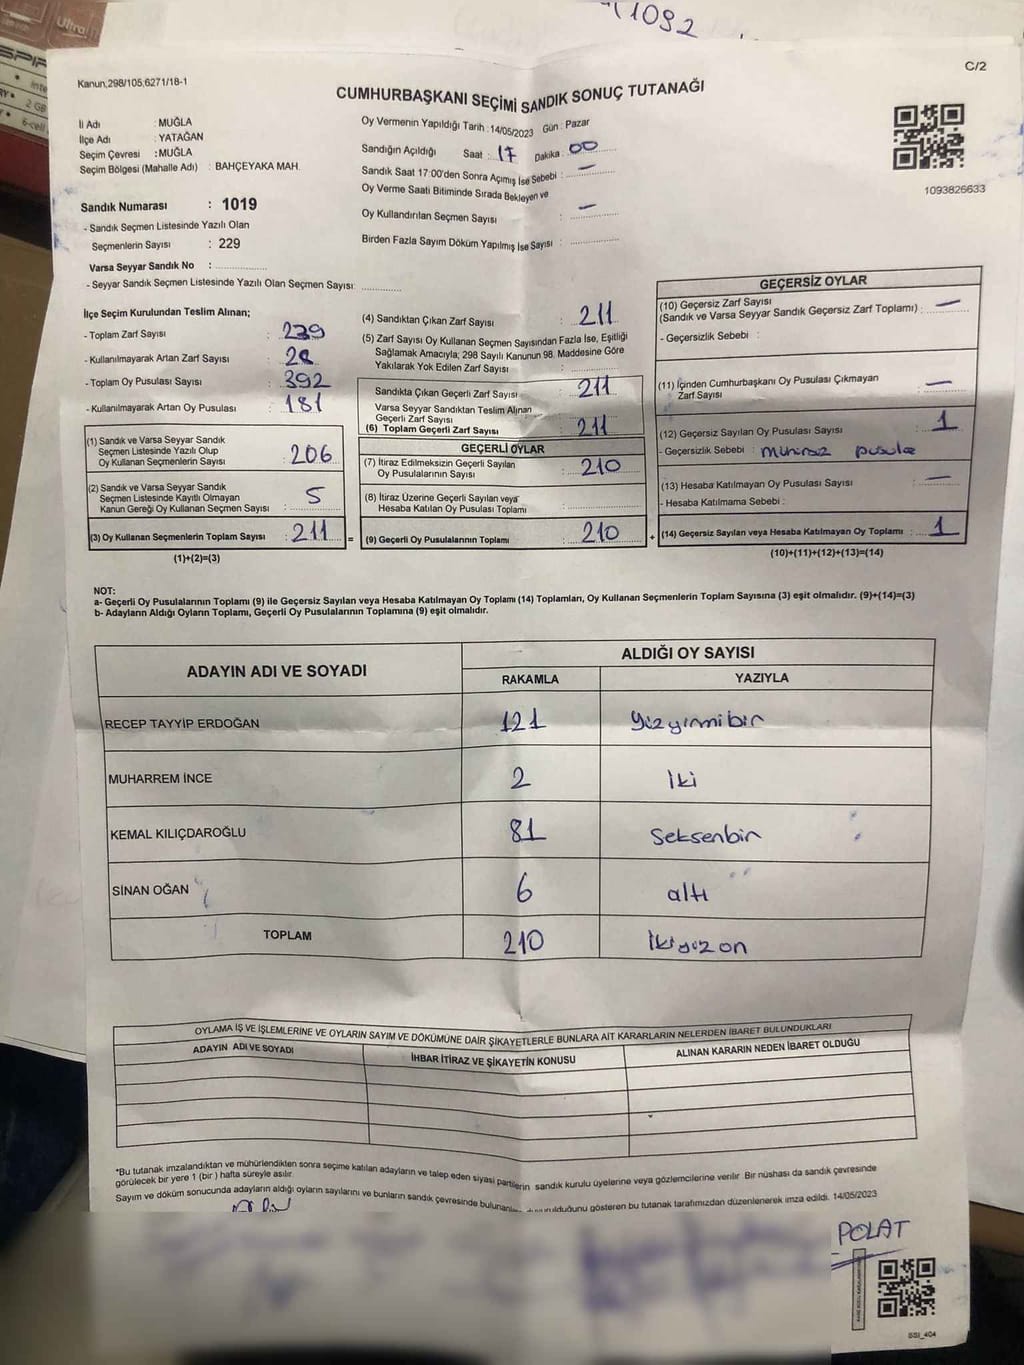 1092
Ultra
C/2
Kanun,298/105,6271/18-1
CUMHURBAŞKANI SEÇİMİ SANDIK SONUÇ TUTANAĞI
İl Adı : MUĞLA
İlçe Adı : YATAĞAN
Seçim Çevresi : MUĞLA
Seçim Bölgesi (Mahalle Adı) : BAHÇEYAKA MAH.
Oy Vermenin Yapıldığı Tarih : 14/05/2023 Gün : Pazar
Sandığın Açıldığı Saat : 17 Dakika : 00
Sandık Saat 17:00'den Sonra Açımış İse Sebebi : —
Oy Verme Saati Bitiminde Sırada Bekleyen ve
Oy Kullandırılan Seçmen Sayısı : —
Birden Fazla Sayım Döküm Yapılmış İse Sayısı :
1093826633
Sandık Numarası : 1019
- Sandık Seçmen Listesinde Yazılı Olan
Seçmenlerin Sayısı : 229
Varsa Seyyar Sandık No :
- Seyyar Sandık Seçmen Listesinde Yazılı Olan Seçmen Sayısı:
İlçe Seçim Kurulundan Teslim Alınan;
- Toplam Zarf Sayısı : 239
- Kullanılmayarak Artan Zarf Sayısı : 28
- Toplam Oy Pusulası Sayısı : 392
- Kullanılmayarak Artan Oy Pusulası : 181
(1) Sandık ve Varsa Seyyar Sandık
Seçmen Listesinde Yazılı Olup
Oy Kullanan Seçmenlerin Sayısı : 206
(2) Sandık ve Varsa Seyyar Sandık
Seçmen Listesinde Kayıtlı Olmayan
Kanun Gereği Oy Kullanan Seçmen Sayısı : 5
(3) Oy Kullanan Seçmenlerin Toplam Sayısı : 211 =
(1)+(2)=(3)
(4) Sandıktan Çıkan Zarf Sayısı : 211
(5) Zarf Sayısı Oy Kullanan Seçmen Sayısından Fazla İse, Eşitliği
Sağlamak Amacıyla; 298 Sayılı Kanunun 98. Maddesine Göre
Yakılarak Yok Edilen Zarf Sayısı :
Sandıkta Çıkan Geçerli Zarf Sayısı : 211
Varsa Seyyar Sandıktan Teslim Alınan
Geçerli Zarf Sayısı :
(6) Toplam Geçerli Zarf Sayısı : 211
GEÇERLİ OYLAR
(7) İtiraz Edilmeksizin Geçerli Sayılan
Oy Pusulalarının Sayısı : 210
(8) İtiraz Üzerine Geçerli Sayılan veya
Hesaba Katılan Oy Pusulası Toplamı :
(9) Geçerli Oy Pusulalarının Toplamı : 210 +
GEÇERSİZ OYLAR
(10) Geçersiz Zarf Sayısı
(Sandık ve Varsa Seyyar Sandık Geçersiz Zarf Toplamı) : —
- Geçersizlik Sebebi :
(11) İçinden Cumhurbaşkanı Oy Pusulası Çıkmayan
Zarf Sayısı : —
(12) Geçersiz Sayılan Oy Pusulası Sayısı : 1
- Geçersizlik Sebebi : mühürsüz pusula
(13) Hesaba Katılmayan Oy Pusulası Sayısı : —
- Hesaba Katılmama Sebebi :
(14) Geçersiz Sayılan veya Hesaba Katılmayan Oy Toplamı : 1
(10)+(11)+(12)+(13)=(14)
NOT:
a- Geçerli Oy Pusulalarının Toplamı (9) ile Geçersiz Sayılan veya Hesaba Katılmayan Oy Toplamı (14) Toplamları, Oy Kullanan Seçmenlerin Toplam Sayısına (3) eşit olmalıdır. (9)+(14)=(3)
b- Adayların Aldığı Oyların Toplamı, Geçerli Oy Pusulalarının Toplamına (9) eşit olmalıdır.
ADAYIN ADI VE SOYADI
ALDIĞI OY SAYISI
RAKAMLA YAZIYLA
RECEP TAYYİP ERDOĞAN 121 yüzyirmibir
MUHARREM İNCE 2 iki
KEMAL KILIÇDAROĞLU 81 Seksenbir
SİNAN OĞAN 6 altı
TOPLAM 210 ikiyüzon
OYLAMA İŞ VE İŞLEMLERİNE VE OYLARIN SAYIM VE DÖKÜMÜNE DAİR ŞİKAYETLERLE BUNLARA AİT KARARLARIN NELERDEN İBARET BULUNDUKLARI
ADAYIN ADI VE SOYADI İHBAR İTİRAZ VE ŞİKAYETİN KONUSU ALINAN KARARIN NEDEN İBARET OLDUĞU
*Bu tutanak imzalandıktan ve mühürlendikten sonra seçime katılan adayların ve talep eden siyasi partilerin sandık kurulu üyelerine veya gözlemcilerine verilir. Bir nüshası da sandık çevresinde
görülecek bir yere 1 (bir) hafta süreyle asılır.
Sayım ve döküm sonucunda adayların aldığı oyların sayılarını ve bunların sandık çevresinde gösteren bu tutanak tarafımızdan düzenlenerek imza edildi. 14/05/2023
POLAT
SSI_404